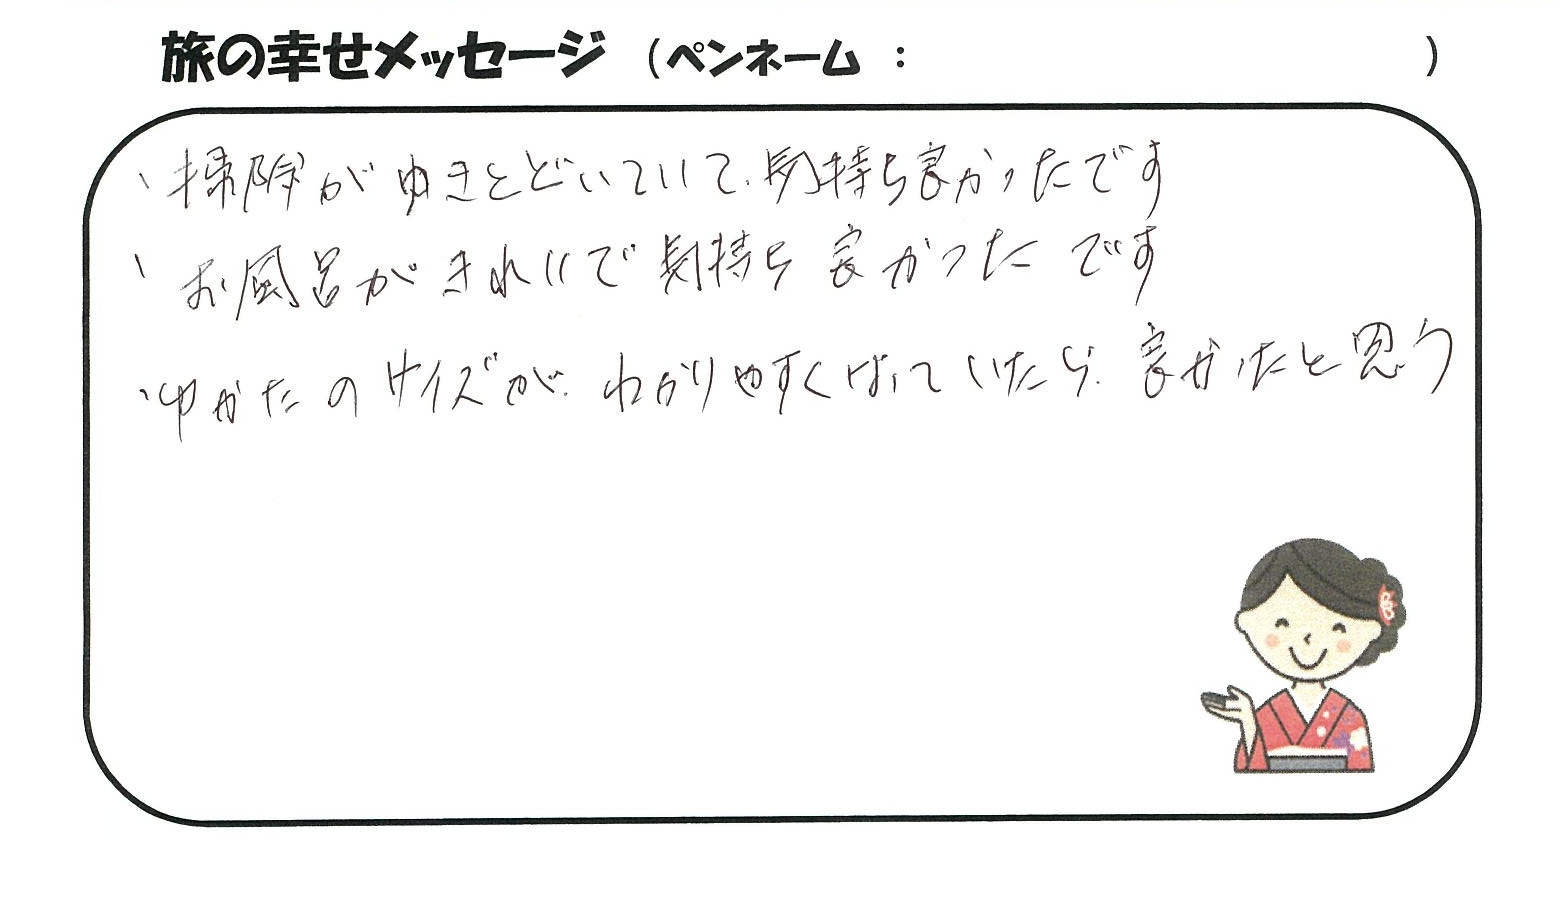 旅の幸せメッセージ (ペンネーム : )
・掃除がゆきとどいていて、気持ち良かったです
・お風呂がきれいで気持ち良かったです
・ゆかたのサイズが、わかりやすくなっていたら、良かったと思う